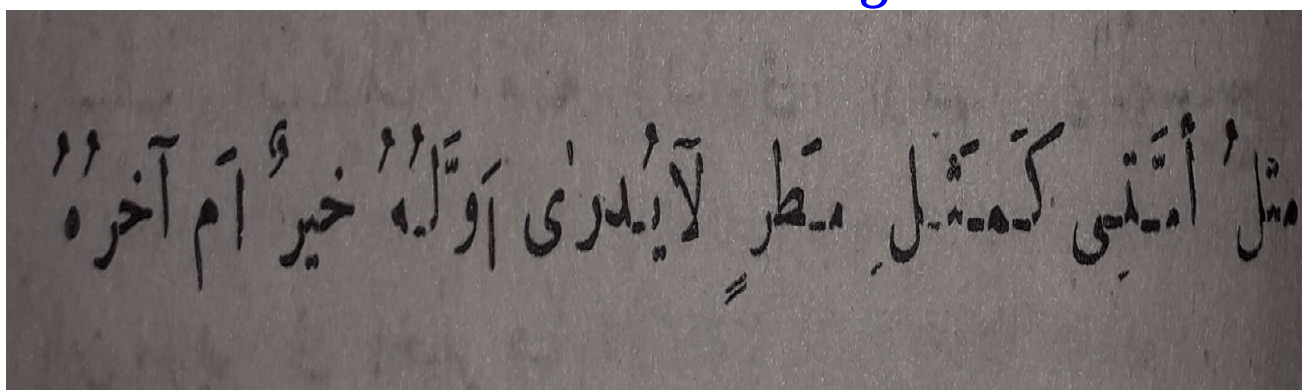 مثلُ أُمَّتِى كَمَثَلِ مَطَرٍ لَآيُدرٰى اَوَّلُهُ خيرٌ اَم آخرُهُ